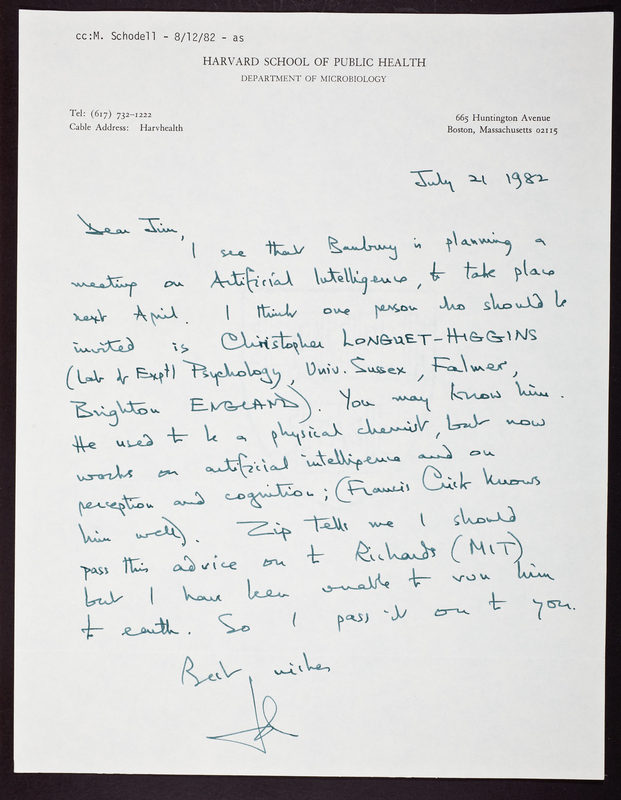 cc:M. Schodell - 8/12/82 - as
HARVARD SCHOOL OF PUBLIC HEALTH
DEPARTMENT OF MICROBIOLOGY
Tel: (617) 732-1222
Cable Address: Harvhealth
665 Huntington Avenue
Boston, Massachusetts 02115
July 21 1982
Dear Jim,
I see that Banbury is planning a
meeting on Artificial Intelligence, to take place
next April. I think one person who should be
invited is Christopher LONGUET-HIGGINS
(Lab of Exptl Psychology, Univ. Sussex, Falmer,
Brighton ENGLAND). You may know him.
He used to be a physical chemist, but now
works on artificial intelligence and on
perception and cognition; (Francis Crick knows
him well). Zip tells me I should
pass this advice on to Richards (MIT)
but I have been unable to run him
to earth. So I pass it on to you.
Best wishes